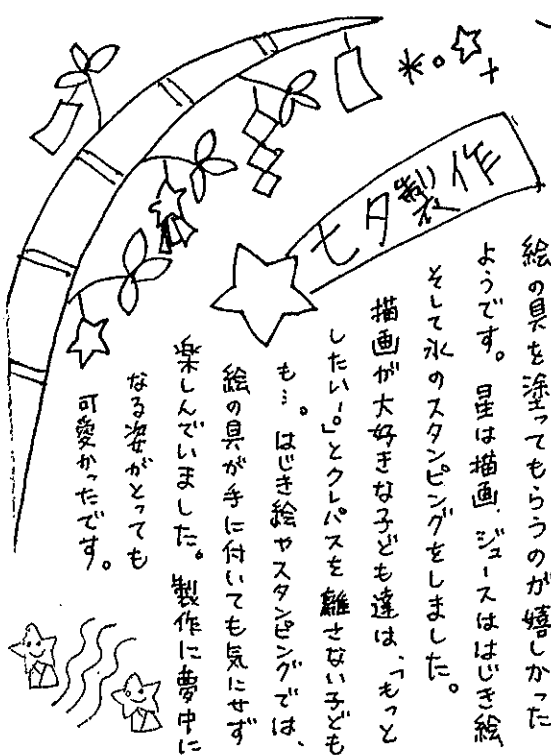 七夕製作
絵の具を塗ってもらうのが嬉しかった
ようです。星は描画、ジュースははじき絵
そして氷のスタンピングをしました。
描画が大好きな子ども達は、「もっと
したい!。」とクレパスを離さない子ども
も…。はじき絵やスタンピングでは、
絵の具が手に付いても気にせず
楽しんでいました。製作に夢中に
なる姿がとっても
可愛かったです。